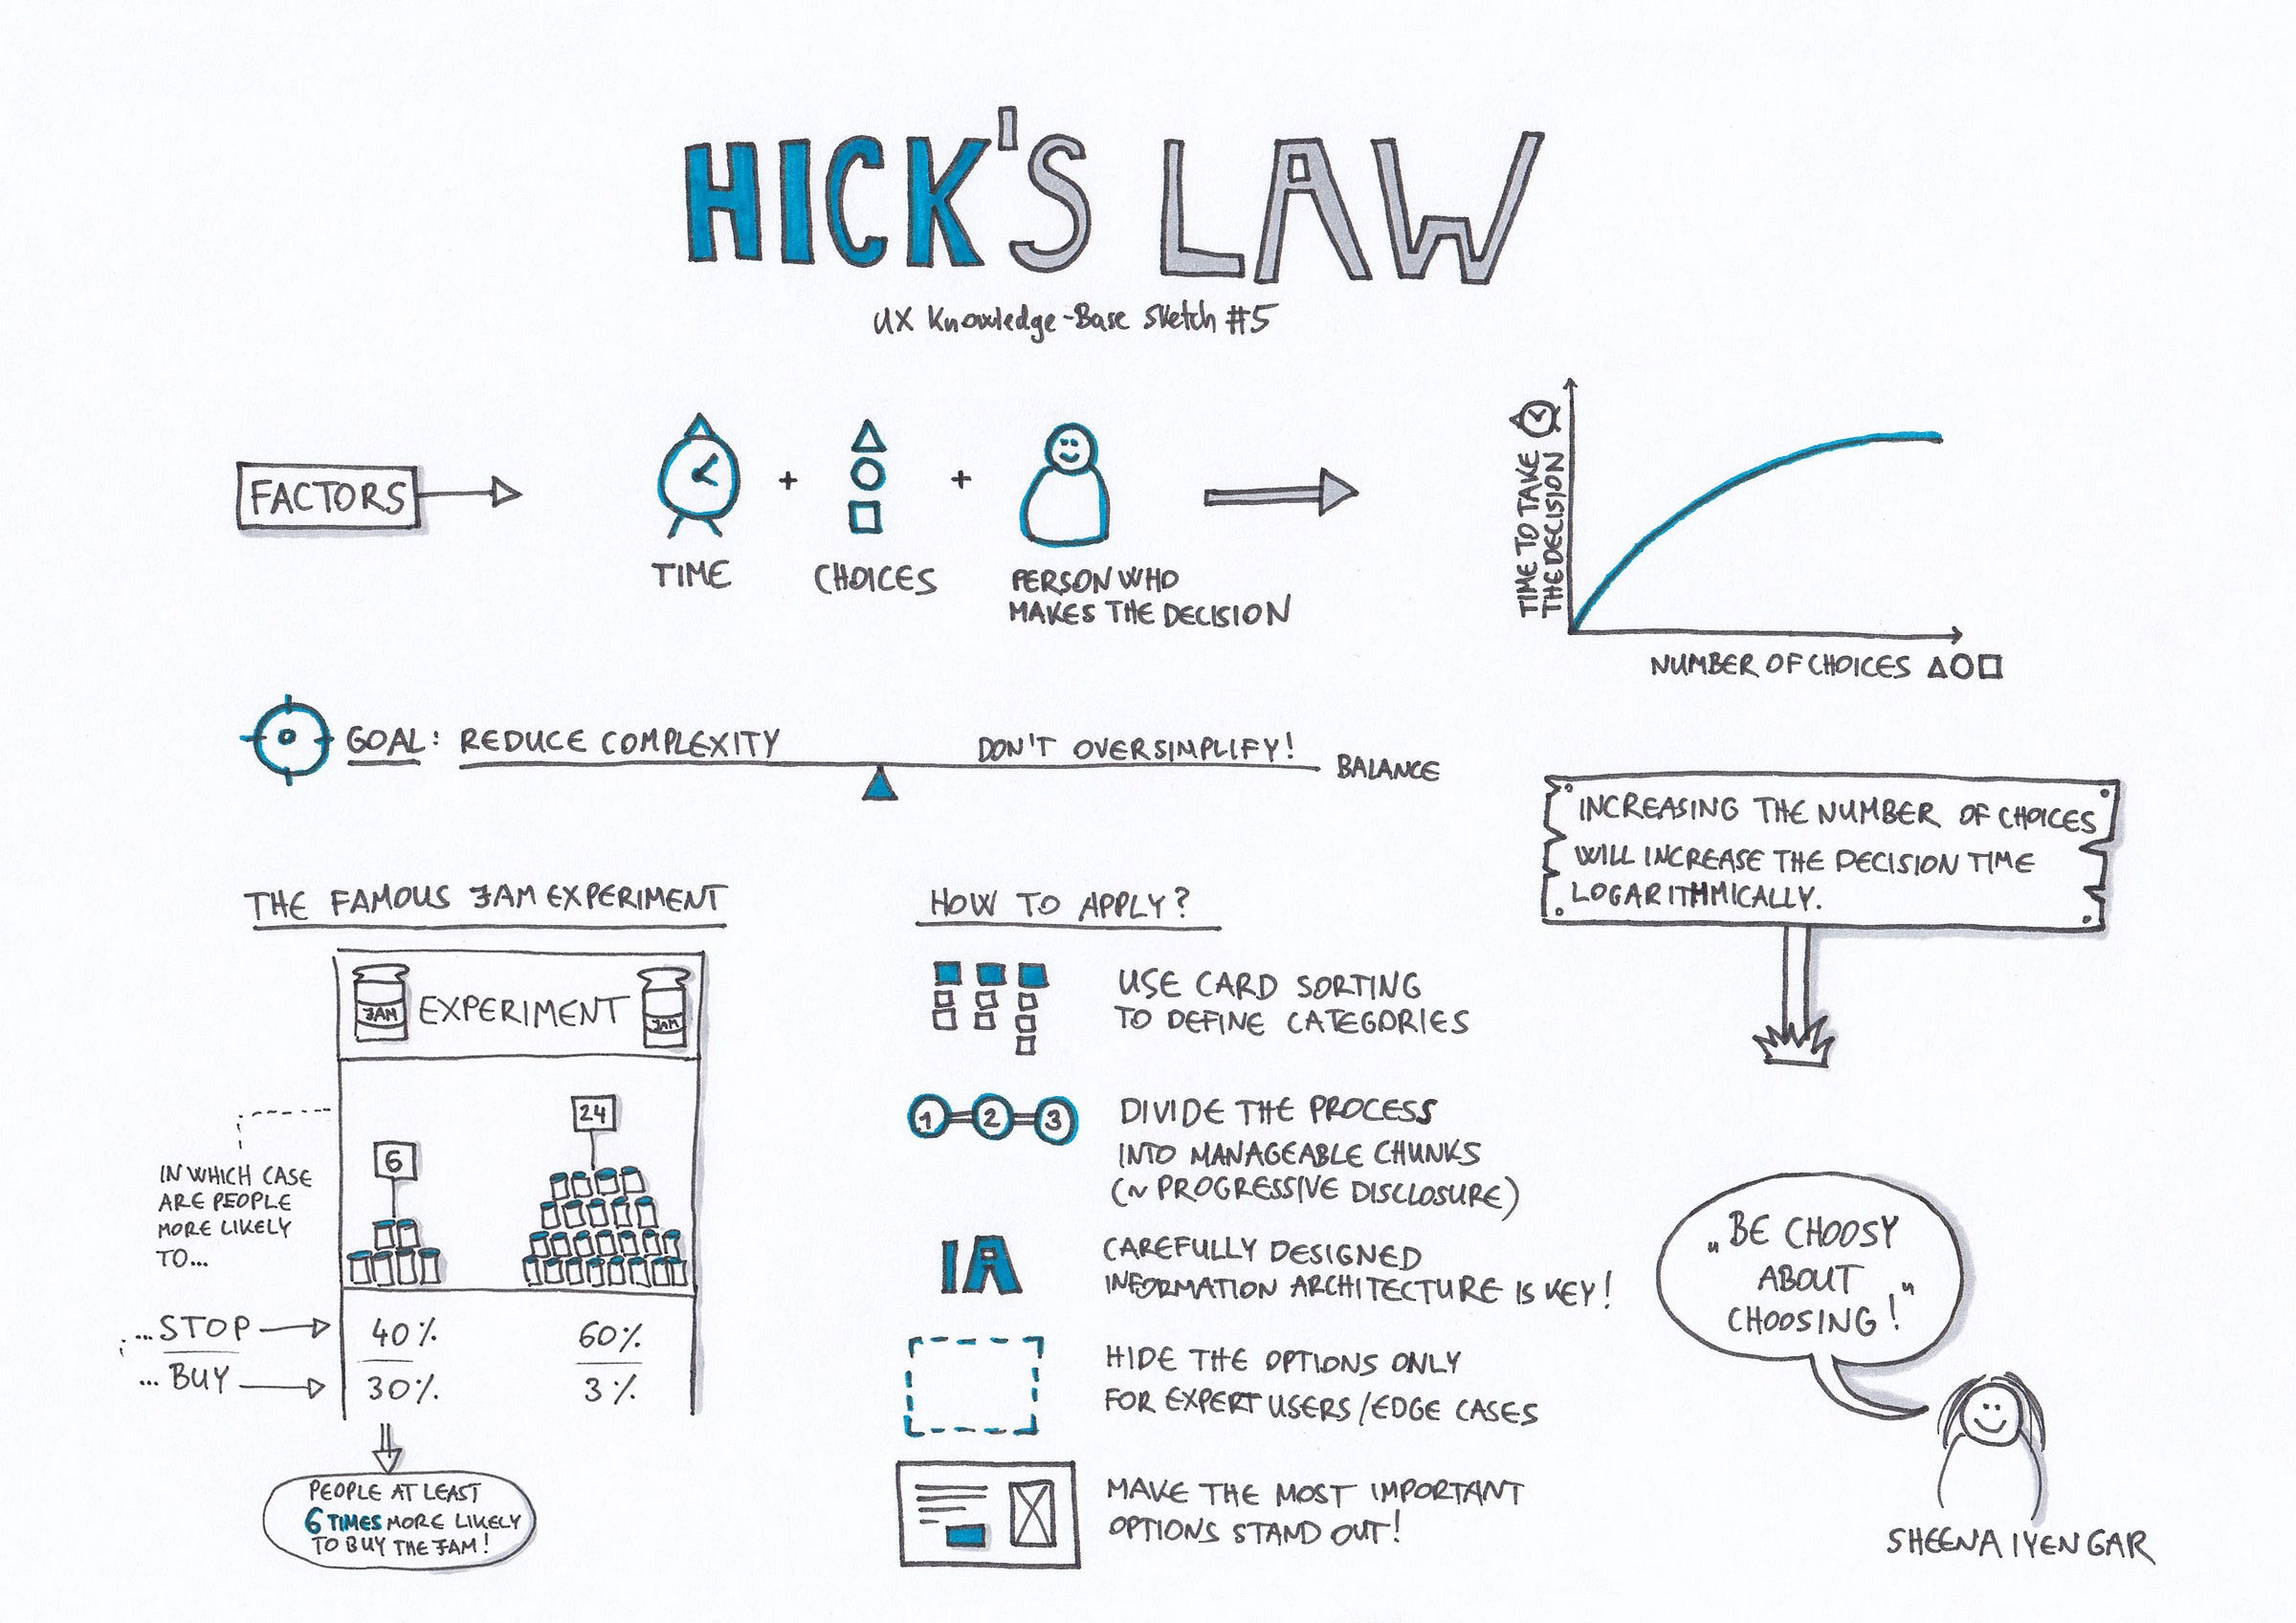 HICK'S LAW
UX Knowledge-Base Sketch #5
FACTORS
TIME
+
CHOICES
+
PERSON WHO
MAKES THE DECISION
TIME TO TAKE
THE DECISION
NUMBER OF CHOICES
GOAL: REDUCE COMPLEXITY
DON'T OVERSIMPLIFY!
BALANCE
INCREASING THE NUMBER OF CHOICES
WILL INCREASE THE DECISION TIME
LOGARITHMICALLY.
THE FAMOUS JAM EXPERIMENT
JAM
EXPERIMENT
JAM
24
6
IN WHICH CASE
ARE PEOPLE
MORE LIKELY
TO...
...STOP
40%
60%
... BUY
30%
3%
PEOPLE AT LEAST
6 TIMES MORE LIKELY
TO BUY THE JAM!
HOW TO APPLY?
USE CARD SORTING
TO DEFINE CATEGORIES
1 2 3
DIVIDE THE PROCESS
INTO MANAGEABLE CHUNKS
(~ PROGRESSIVE DISCLOSURE)
IA
CAREFULLY DESIGNED
INFORMATION ARCHITECTURE IS KEY!
HIDE THE OPTIONS ONLY
FOR EXPERT USERS/EDGE CASES
MAKE THE MOST IMPORTANT
OPTIONS STAND OUT!
„BE CHOOSY
ABOUT
CHOOSING!"
SHEENA IYENGAR